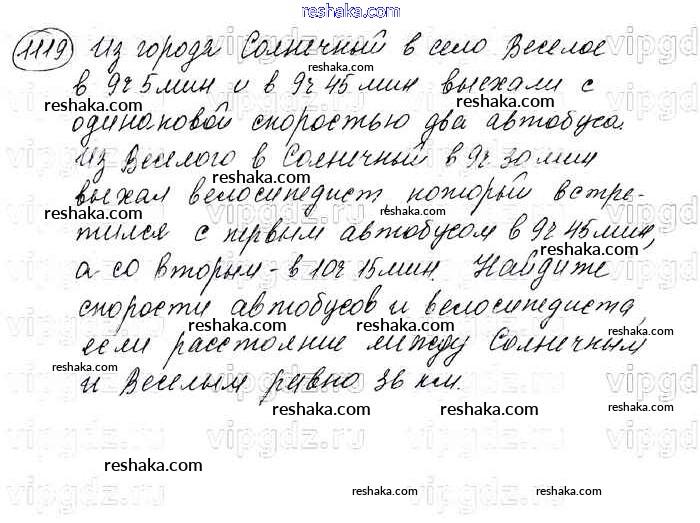 reshaka.com
1119 Из города Солнечный в село Веселое
reshaka.com
в 9ч 5мин и в 9ч 45мин выехали с
reshaka.com reshaka.com
одинаковой скоростью два автобуса.
Из Веселого в Солнечный в 9ч 30мин
reshaka.com reshaka.com
выехал велосипедист, который встре-
reshaka.com reshaka.com
тился с первым автобусом в 9ч 45мин,
reshaka.com reshaka.com
а со вторым - в 10ч 15мин. Найдите
скорости автобусов и велосипедиста,
reshaka.com reshaka.com
если расстояние между Солнечным
reshaka.com reshaka.com
и Веселым равно 36 км.
reshaka.com reshaka.com
vipgdz.ru vipgdz.ru
reshaka.com reshaka.com
reshaka.com reshaka.com